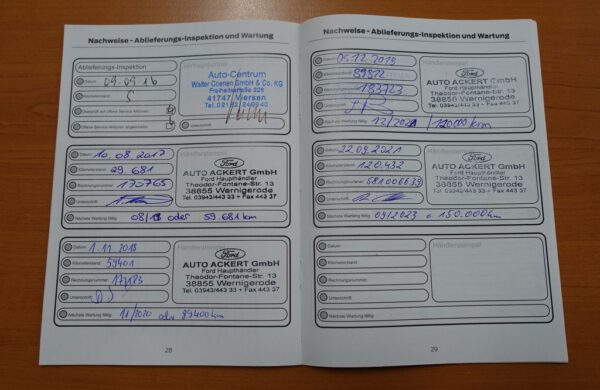 Nachweise - Ablieferungs-Inspektion und Wartung
Ablieferungs-Inspektion
Datum: 09.09.16
Kilometerstand: 5
Geprüft auf offene Service Aktionen
Offene Service Aktionen abgearbeitet
Auto-Centrum
Walter Coenen GmbH & Co. KG
Freiheitstraße 205
41747 Viersen
Datum: 10.08.2017
Kilometerstand: 29.681
Rechnungsnummer: 170765
Unterschrift:
Nächste Wartung fällig: 08/19 oder 59.681 km
Händlerstempel
Ford
AUTO ACKERT GmbH
Ford Haupthändler
Theodor-Fontane-Str. 13
38855 Wernigerode
Tel. 03943/443 33 • Fax 443 37
Datum: 1.11.2018
Kilometerstand: 59401
Rechnungsnummer: 177183
Unterschrift:
Nächste Wartung fällig: 11/2020 oder 89400 km
Händlerstempel
Ford
AUTO ACKERT GmbH
Ford Haupthändler
Theodor-Fontane-Str. 13
38855 Wernigerode
Tel. 03943/443 33 • Fax 443 37
28
Nachweise - Ablieferungs-Inspektion und Wartung
Datum: 05.12.2019
Kilometerstand: 89972
Rechnungsnummer: 183723
Unterschrift:
Nächste Wartung fällig: 12/2021 / 120000 km
Händlerstempel
Ford
AUTO ACKERT GmbH
Ford Haupthändler
Theodor-Fontane-Str. 13
38855 Wernigerode
Tel. 03943/443 33 • Fax 443 37
Datum: 22.09.2021
Kilometerstand: 120.432
Rechnungsnummer: 581006639
Unterschrift:
Nächste Wartung fällig: 09/2023 o. 150.000 km
Händlerstempel
Ford
AUTO ACKERT GmbH
Ford Haupthändler
Theodor-Fontane-Str. 13
38855 Wernigerode
Tel. 03943/443 33 • Fax 443 37
Datum:
Kilometerstand:
Rechnungsnummer:
Unterschrift:
Nächste Wartung fällig:
Händlerstempel
29